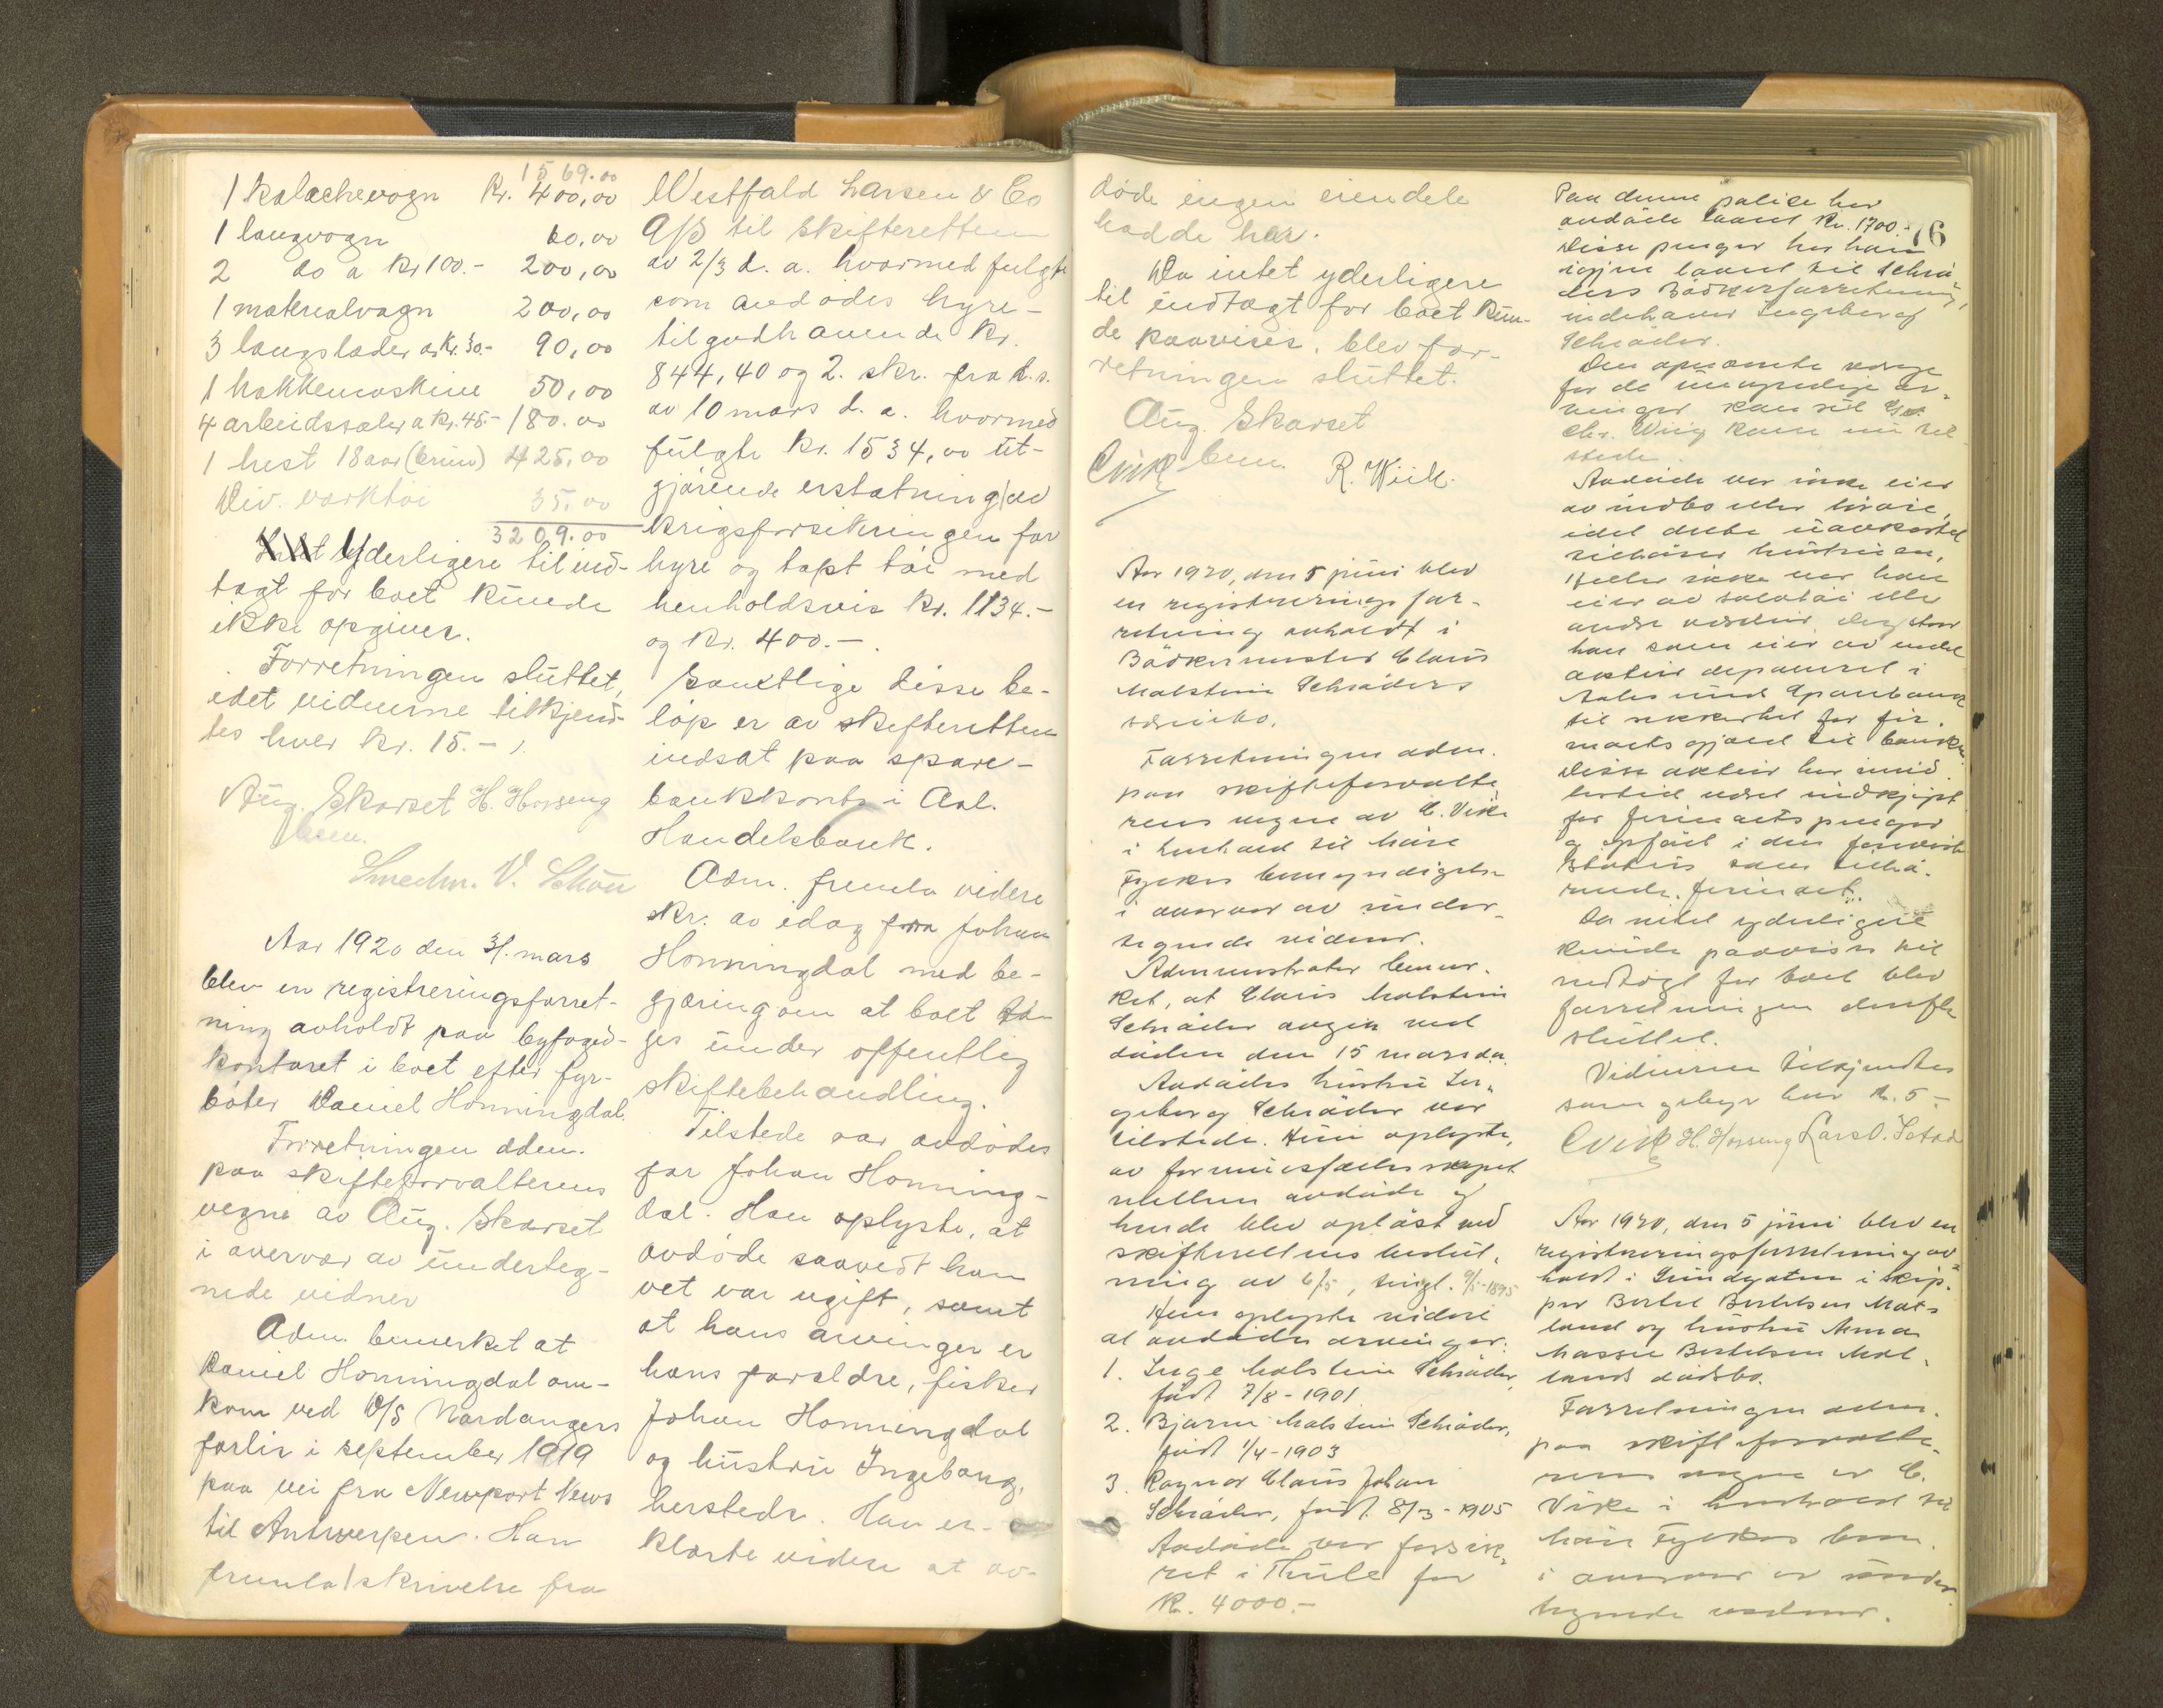 1569.00
1 Kalachevogn Kr. 400,00
1 langvogn 60,00
2 do a Kr 100.- 200,00
1 materialvogn 200,00
3 langslæder a Kr. 30.- 90,00
1 hakkemaskine 50,00
4 arbeidssæler a Kr. 45.- 180.00
1 hest 18 aar (brun) 425,00
Div. værktøi 35.00
3209.00
Yderligere til ind-
tægt for boet kunde
ikke opgives.
Forretningen sluttet,
idet vidnerne tilkjend-
tes hver kr. 15.-
Aug. Skarset H. Hosseng
bem.
V. Schou
Aar 1920 den 31. mars
blev en registreringsforret-
ning avholdt paa byfoged-
kontoret i boet efter fyr-
bøter Daniel Honningdal.
Forretningen adm.
paa skifteforvalterens
vegne av Aug. Skarset
i overvær av underteg-
nede vidner
Adm. bemerket at
Daniel Honningdal om-
kom ved D/S Hardangers
forlis i september 1919
paa vei fra Newport News
til Antwerpen. Han
fremla skrivelse fra
Westfald Larsen & Co
A/S til skifteretten
av 2/3 d. a. hvormed fulgte
som avdødes hyre-
tilgodehavende kr.
844,40 og 2. skr. fra d.s.
av 10 mars d. a. hvormed
fulgte kr. 1534,00 ut-
gjørende erstatning av
krigsforsikringen for
hyre og tapt tøi med
henholdsvis kr. 1134.-
og kr. 400.-.
Samtlige disse be-
løp er av skifteretten
indsat paa spare-
bankkonto i Aal.
Handelsbank.
Adm. fremla videre
skr. av idag fra Johan
Honningdal med be-
gjæring om at boet ta-
ges under offentlig
skiftebehandling.
Tilstede var avdødes
far Johan Honning-
dal. Han oplyste, at
avdøde saavidt han
vet var ugift, samt
at hans arvinger er
hans forældre, fisker
Johan Honningdal
og hustru Ingeborg,
hersteds. Han er-
klærte videre at av-
døde ingen eiendele
hadde her.
Da intet yderligere
til indtægt for boet kun-
de paavises, blev for-
retningen sluttet.
Aug. Skarset
bem.
CVik R. Wiik.
Aar 1920, den 5 juni blev
en registreringsfor-
retning avholdt i
Bødkermester Claus
Holstein Schrøders
særbo.
Forretningen adm.
paa skifteforvalte
rens vegne av C. Vike
i henhold til häns
Fylkes bemyndigelse
i overvær av under-
tegnede vidner.
Administrator bemer-
ket, at Claus Holstein
Schrøder avgik ved
døden den 15 mars da.
Avdødes hustru In-
geborg Schrøder var
tilstede. Hun oplyste,
av formuesfællesskapet
mellem avdøde og
hende blev opløst ved
skifterettens beslut-
ning av 6/5, tingl. 9/5-1895
Hun oplyste videre
at avdødes arvinger:
1. Inge Holstein Schrøder,
født 7/8-1901
2. Bjarne Holstein Schrøder,
født 1/4-1903
3. Ragnar Claus Johan
Schrøder, født 8/3-1905
Avdøde var forsik-
ret i Thule for
K. 4000.-
76
Paa denne polise har
avdøde laant Kr. 1700.-
Disse penger har han
igjen laant til Schrø
ders Bødkerforretning,
indehaver Ingeborg
Schrøder.
Den opnævnte verge
for de umyndige ar-
vinger
Chr. Wiig kom nu til
stede.
Avdøde var ikke eier
av indbo eller løsøre,
idet dette uavkortet
tilhører hustruen,
Heller ikke var han
eier av sølvtøi eller
andre værdier. Dog staar
han som eier av endel
aktier deponert i
Aalesunds Sparebank
til sikkerhet for fir-
maets gjæld til banken
Disse aktier har imid-
lertid været indkjøpt
for firmaets penger
og opført i den
status som tilhø-
rende firmaet.
Da intet yderligere
kunde paavises til
indtægt for boet blev
forretningen derefter
sluttet.
Vidnerne tilkjendtes
som gebyr hver K. 5.-
CVik H. Hosseng Lars O.
Aar 1920, den 5 juni blev en
registreringsforretning av-
holdt i Strandgaten i skip-
per Bertel Bertelsen Mol-
land og hustru Anna
Hassie Bertelsen Mol-
lands dødsbo.
Forretningen adm.
paa skifteforvalte-
rens vegne av C.
Vike i henhold til
häns Fylkes bem.
i overvær av under
tegnede vidner.